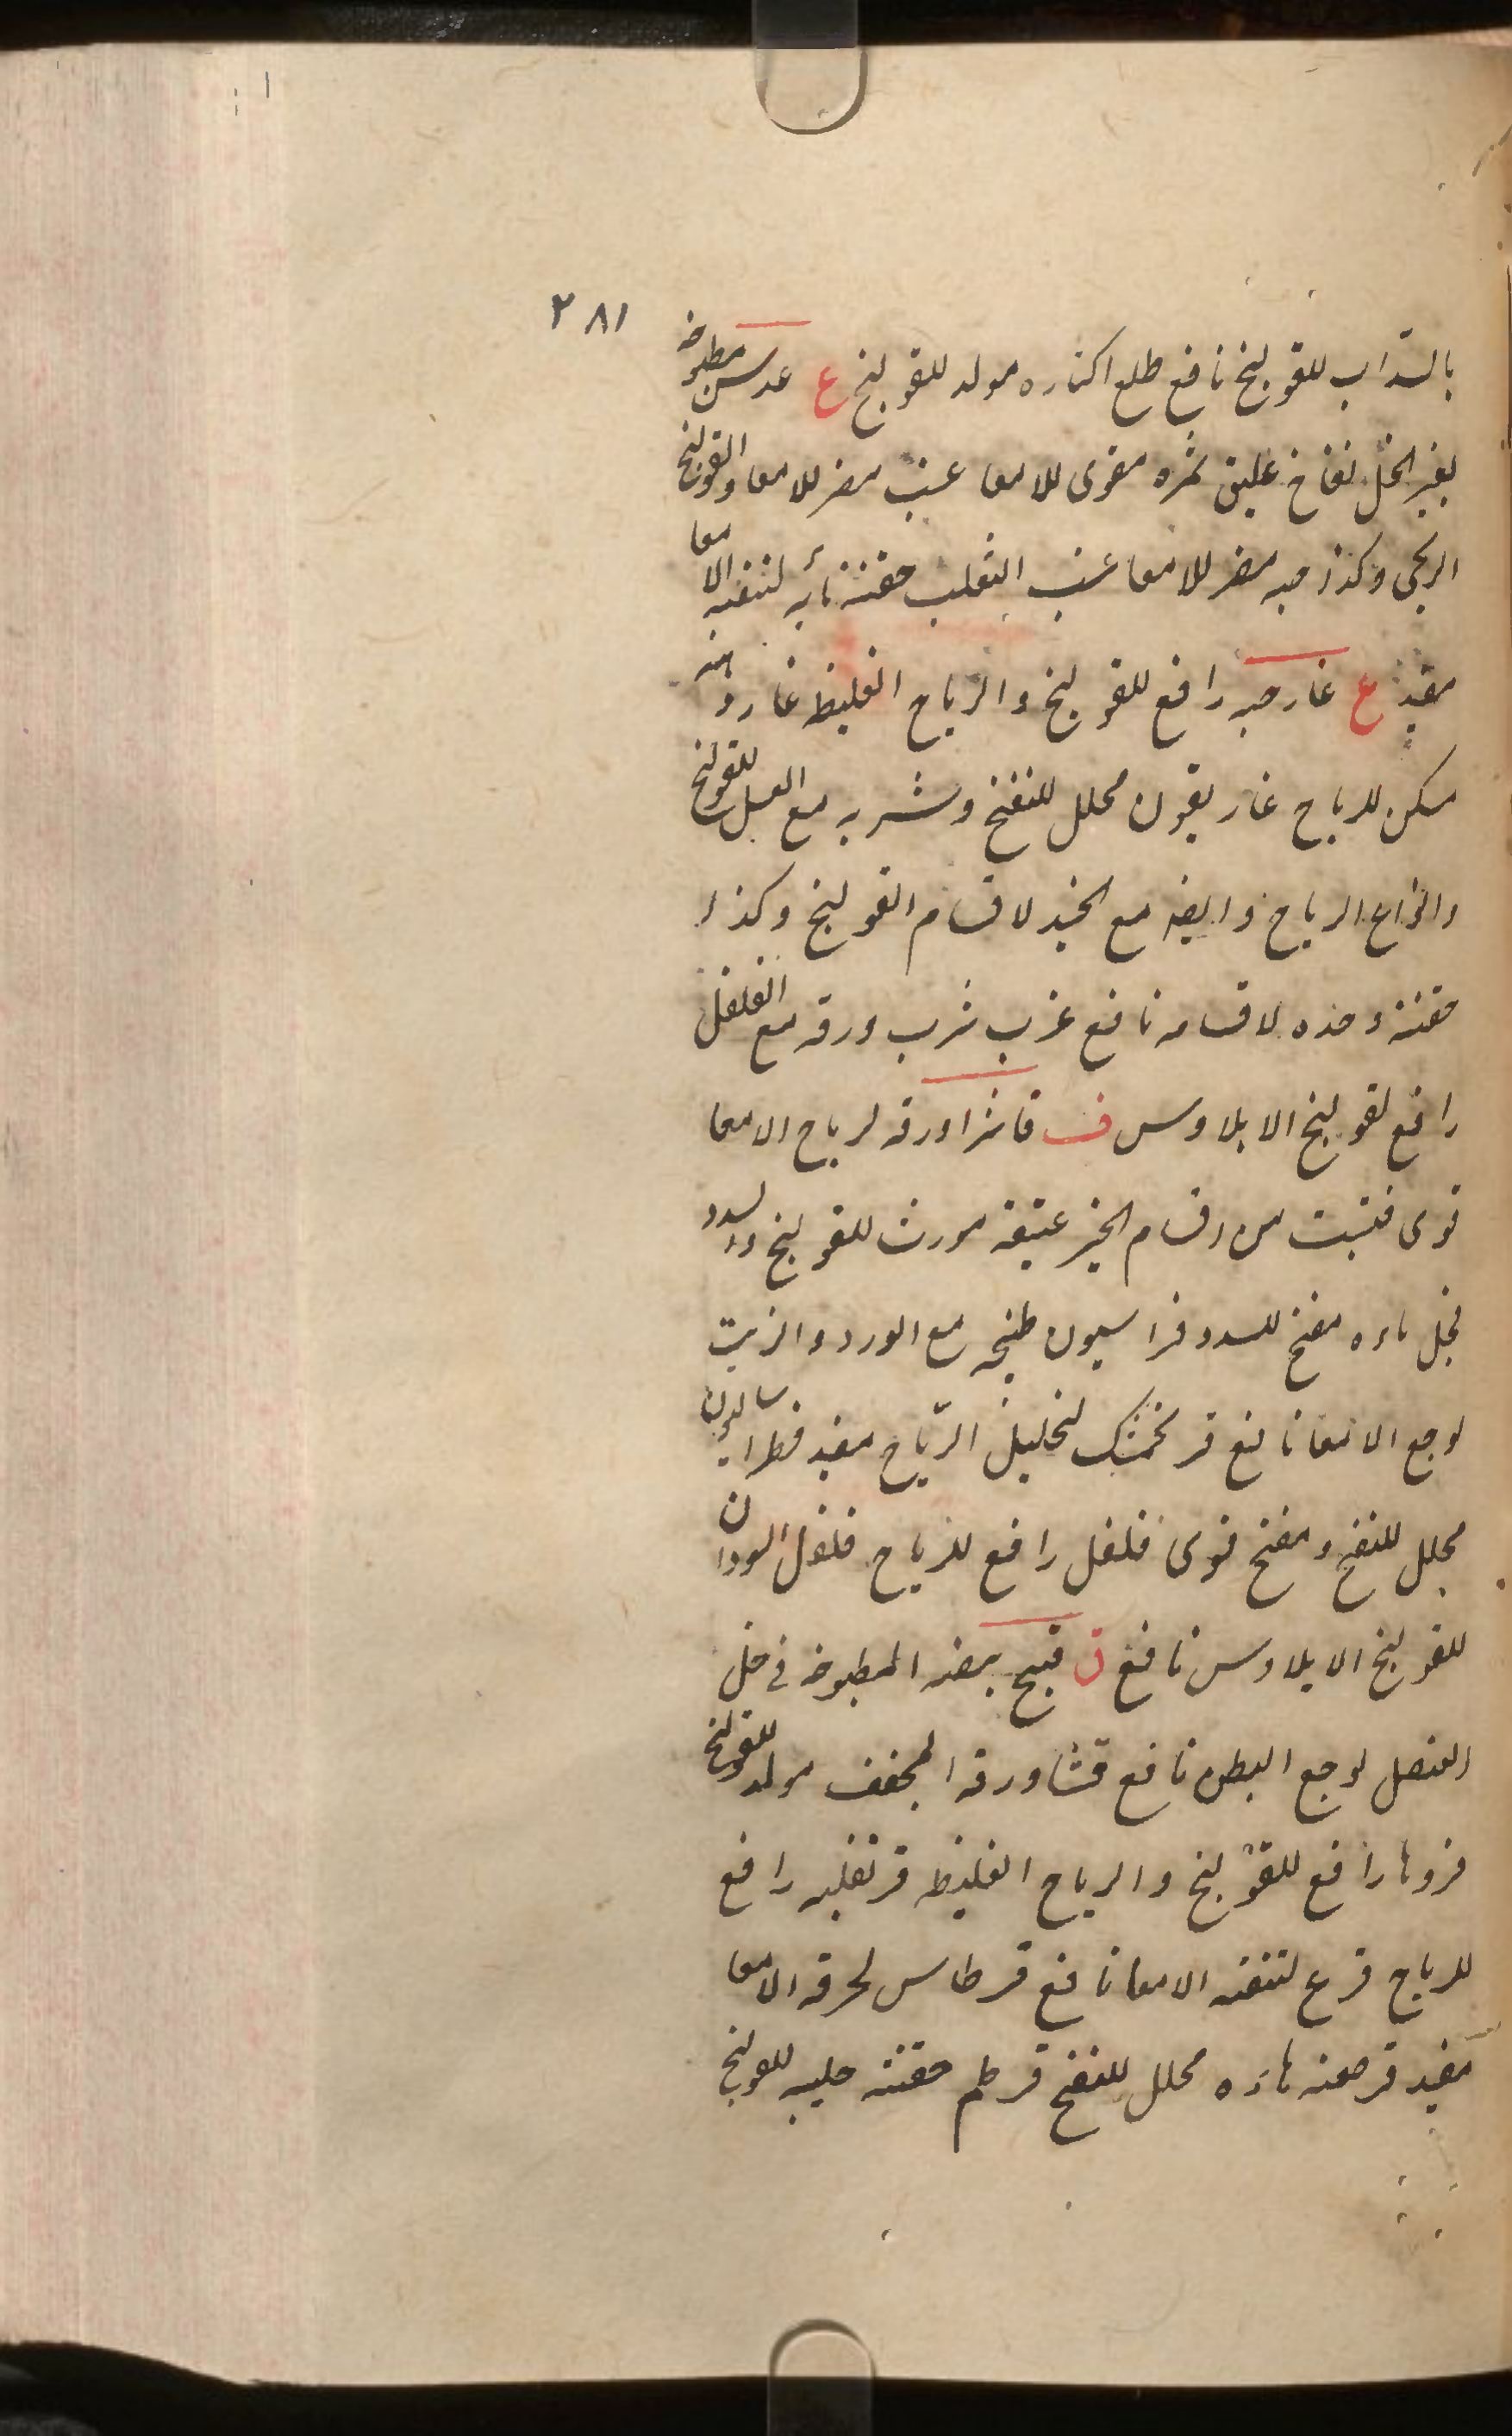 ٢٨١
بالسداب للقولنج نافع طلع اكثاره مولد للقولنج ع عدس مطبوخه
بغير الخل نفاخ عليق ثمره مقوى للامعا عنب مضر للامعا والقولنج
الريحى وكذا حبه مضر للامعا عنب الثعلب حقنته لتنقيه الامعا
مفيد غ غار حبه رافع للقولنج والرياح الغليظه غار دهنه
مسكن للرياح غاريقون محلل للنفخ وشربه مع العسل للقولنج
وانواع الرياح وايضه مع لاقسام القولنج وكذا
حقنته وحده لاقسامه نافع غرب شرب ورقه مع الفلفل
رافع لقولنج الايلاوس ف فاشرا ورقه لرياح الامعا
قوى فتيت من اقسام الخبز عتيقه مورث للقولنج والسدد
فجل ماءه مفتح للسدد فراسيون طبيخه مع الورد والزيت
لوجع الامعا نافع فرنجمشك لتحليل الرياح مفيد فطراساليون
محلل للنفخ ومفتح قوى فلفل رافع للرياح فلفل السودان
للقولنج الايلاوس نافع ق قبج بيضه المطبوخه فى خل
العنصل لوجع البطن نافع قثا ورقه المجفف مولد للقولنج
رافع للقولنج والرياح الغليظه قرنفليه رافع
للرياح قرع لتنقيه الامعا نافع قرطاس لحرقه الامعا
مفيد قرصعنه ماءه محلل للنفخ قرطم حقنته حليبه للقولنج